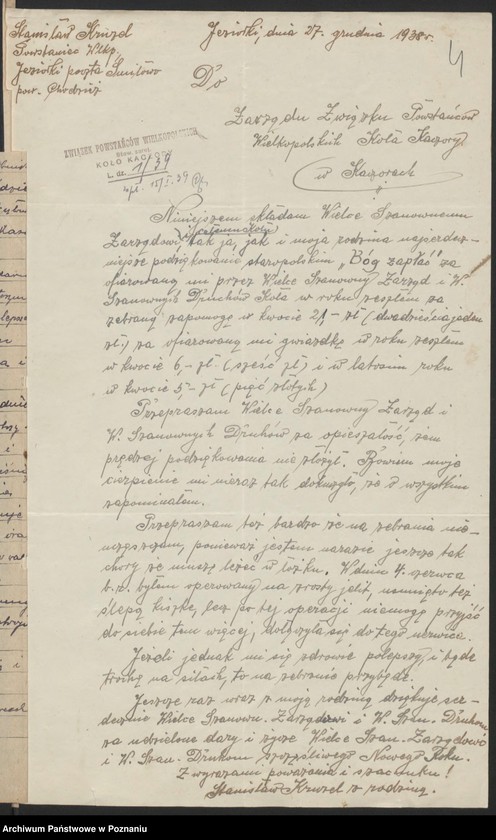 Stanisław Kruzel
Powstaniec Wlkp.
Jeziorki poczta Śmiłowo
pow. Chodzież
Jeziorki, dnia 27. grudnia 1938 r.
4
Do
Zarządu Związku Powstańców
Wielkopolskich Koła Kaczory
w Kaczorach
ZWIĄZEK POWSTAŃCÓW WIELKOPOLSKICH
KOŁO KACZORY
L. dz. 1/39
Niniejszem składam Wielce Szanownemu
Zarządowi tak ja, jak i moja rodzina najserdecz-
niejsze podziękowanie staropolskim „Bóg zapłać" za
ofiarowaną mi przez Wielce Szanowny Zarząd i W.
Szanownych Druhów Koła w roku zeszłem za
zebraną zapomogę w kwocie 21,- zł (dwadzieścia jeden
zł.) za ofiarowaną mi gwiazdkę w roku zeszłem
w kwocie 6,- zł. (sześć zł) i w latosim roku
w kwocie 5,- zł (pięć złotych)
Przepraszam Wielce Szanowny Zarząd i
W. Szanownych Druhów za opieszałość, żem
prędzej podziękowania nie złożył. Bowiem moje
cierpienie mi nieraz tak dokuczyło, że o wszystkim
zapomniałem.
Przepraszam też bardzo że na zebrania nie-
uczęszczam, ponieważ jestem narazie jeszcze tak
chory że muszę leżeć w łóżku. W dniu 4. czerwca
b.r. byłem operowany na zrosty jelit, usunięto też
ślepą kiszkę, lecz po tej operacji niemogę przyjść
do siebie tem więcej, dołączyła się do tego nerwica.
Jeżeli jednak mi się zdrowie polepszy i będę
trochę na siłach, to na zebranie przyjdę.
Jeszcze raz wraz z moją rodziną dziękuję ser-
decznie Wielce Szanown. Zarządowi i W. Szan. Druhom
za udzielone dary i życzę Wielce Szan. Zarządowi
i W. Szan. Druhom szczęśliwego Nowego Roku.
Z wyrazami poważania i szacunku!
Stanisław Kruzel z rodziną.
Archiwum Państwowe w Poznaniu